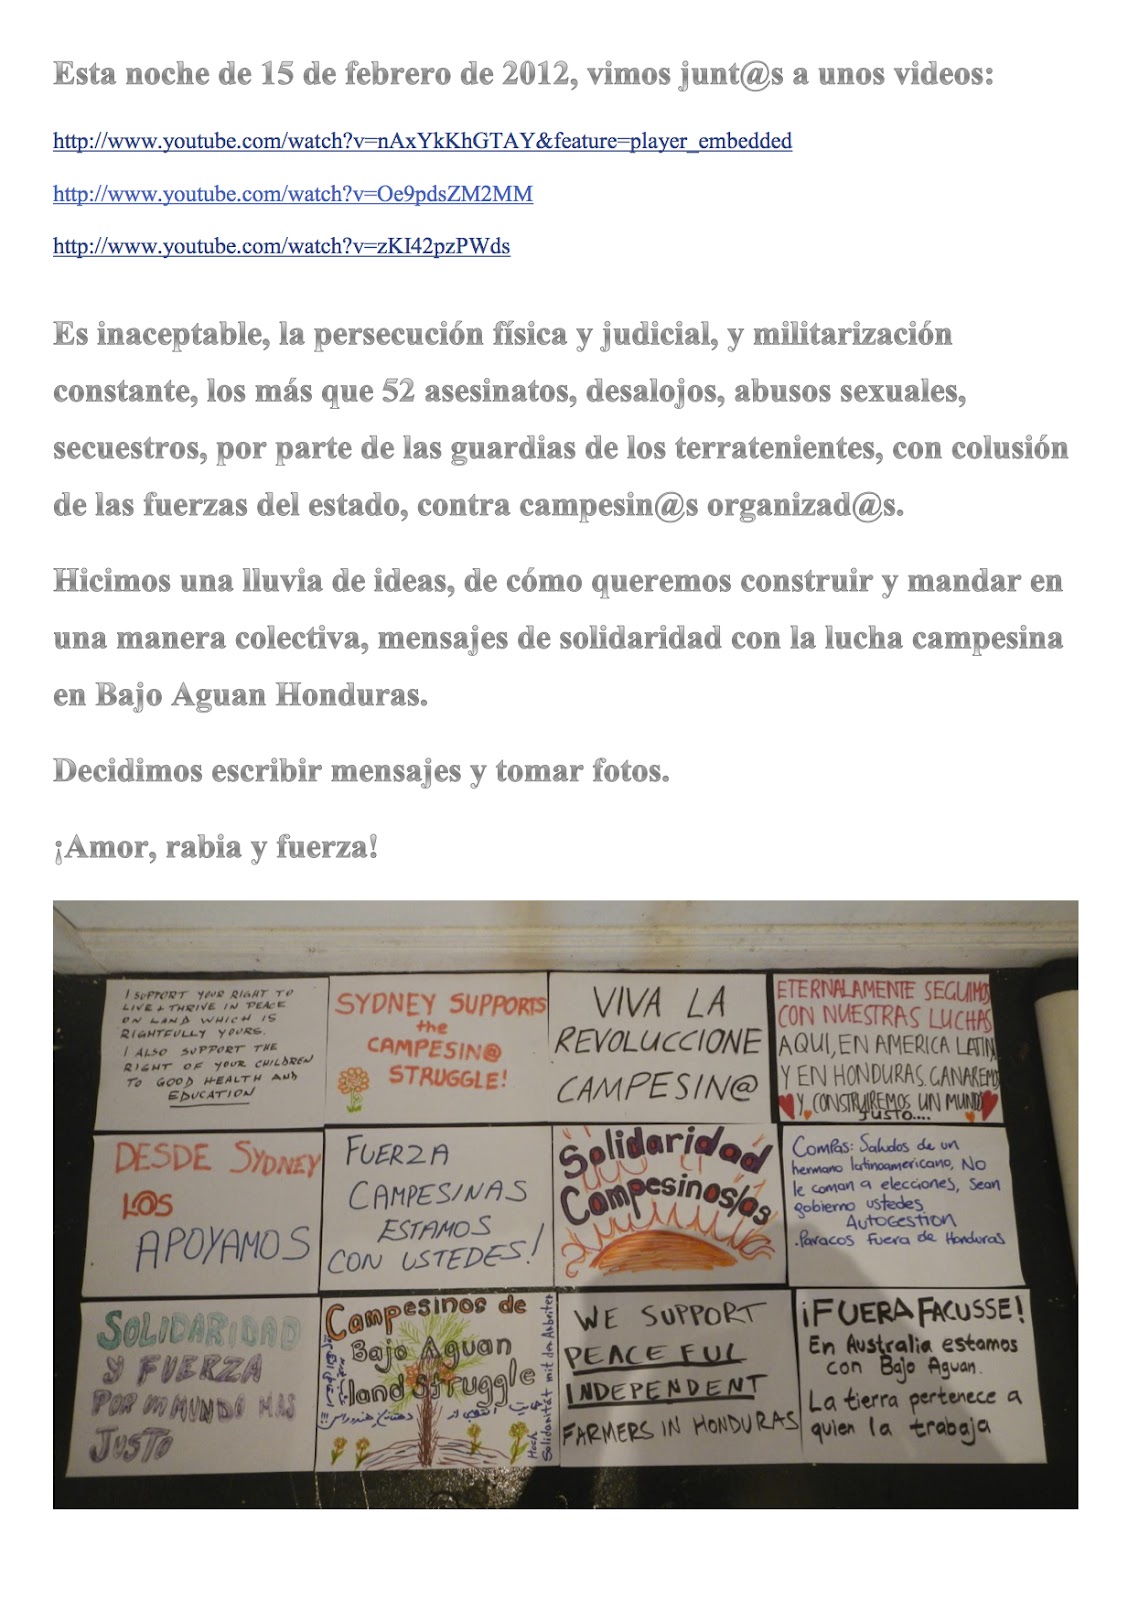 Esta noche de 15 de febrero de 2012, vimos junt@s a unos videos:
http://www.youtube.com/watch?v=nAxYkKhGTAY&feature=player_embedded
http://www.youtube.com/watch?v=Oe9pdsZM2MM
http://www.youtube.com/watch?v=zKI42pzPWds
Es inaceptable, la persecución física y judicial, y militarización
constante, los más que 52 asesinatos, desalojos, abusos sexuales,
secuestros, por parte de las guardias de los terratenientes, con colusión
de las fuerzas del estado, contra campesin@s organizad@s.
Hicimos una lluvia de ideas, de cómo queremos construir y mandar en
una manera colectiva, mensajes de solidaridad con la lucha campesina
en Bajo Aguan Honduras.
Decidimos escribir mensajes y tomar fotos.
¡Amor, rabia y fuerza!
I SUPPORT YOUR RIGHT TO
LIVE & THRIVE IN PEACE
ON LAND WHICH IS
RIGHTFULLY YOURS.
I ALSO SUPPORT THE
RIGHT OF YOUR CHILDREN
TO GOOD HEALTH AND
EDUCATION
SYDNEY SUPPORTS
the
CAMPESIN@
STRUGGLE!
VIVA LA
REVOLUCCIONE
CAMPESIN@
ETERNALAMENTE SEGUIMOS
CON NUESTRAS LUCHAS
AQUI, EN AMERICA LATIN
Y EN HONDURAS. GANAREMOS
Y CONSTRUIREMOS UN MUNDO
JUSTO....
DESDE SYDNEY
L@S
APOYAMOS
FUERZA
CAMPESINAS
ESTAMOS
CON USTEDES!
Solidaridad
Campesinos/as
Compas: Saludos de un
hermano latinoamericano, NO
le coman a elecciones, sean
gobierno ustedes
AUTOGESTION
.Paracos Fuera de Honduras
SOLIDARIDAD
Y FUERZA
POR UN MUNDO MAS
JUSTO
Campesinos de
Bajo Aguan
land struggle
Hoch
Solidarität mit den Arbeiter
WE SUPPORT
PEACEFUL
INDEPENDENT
FARMERS IN HONDURAS
¡FUERA FACUSSE!
En Australia estamos
con Bajo Aguan.
La tierra pertenece a
quien la trabaja